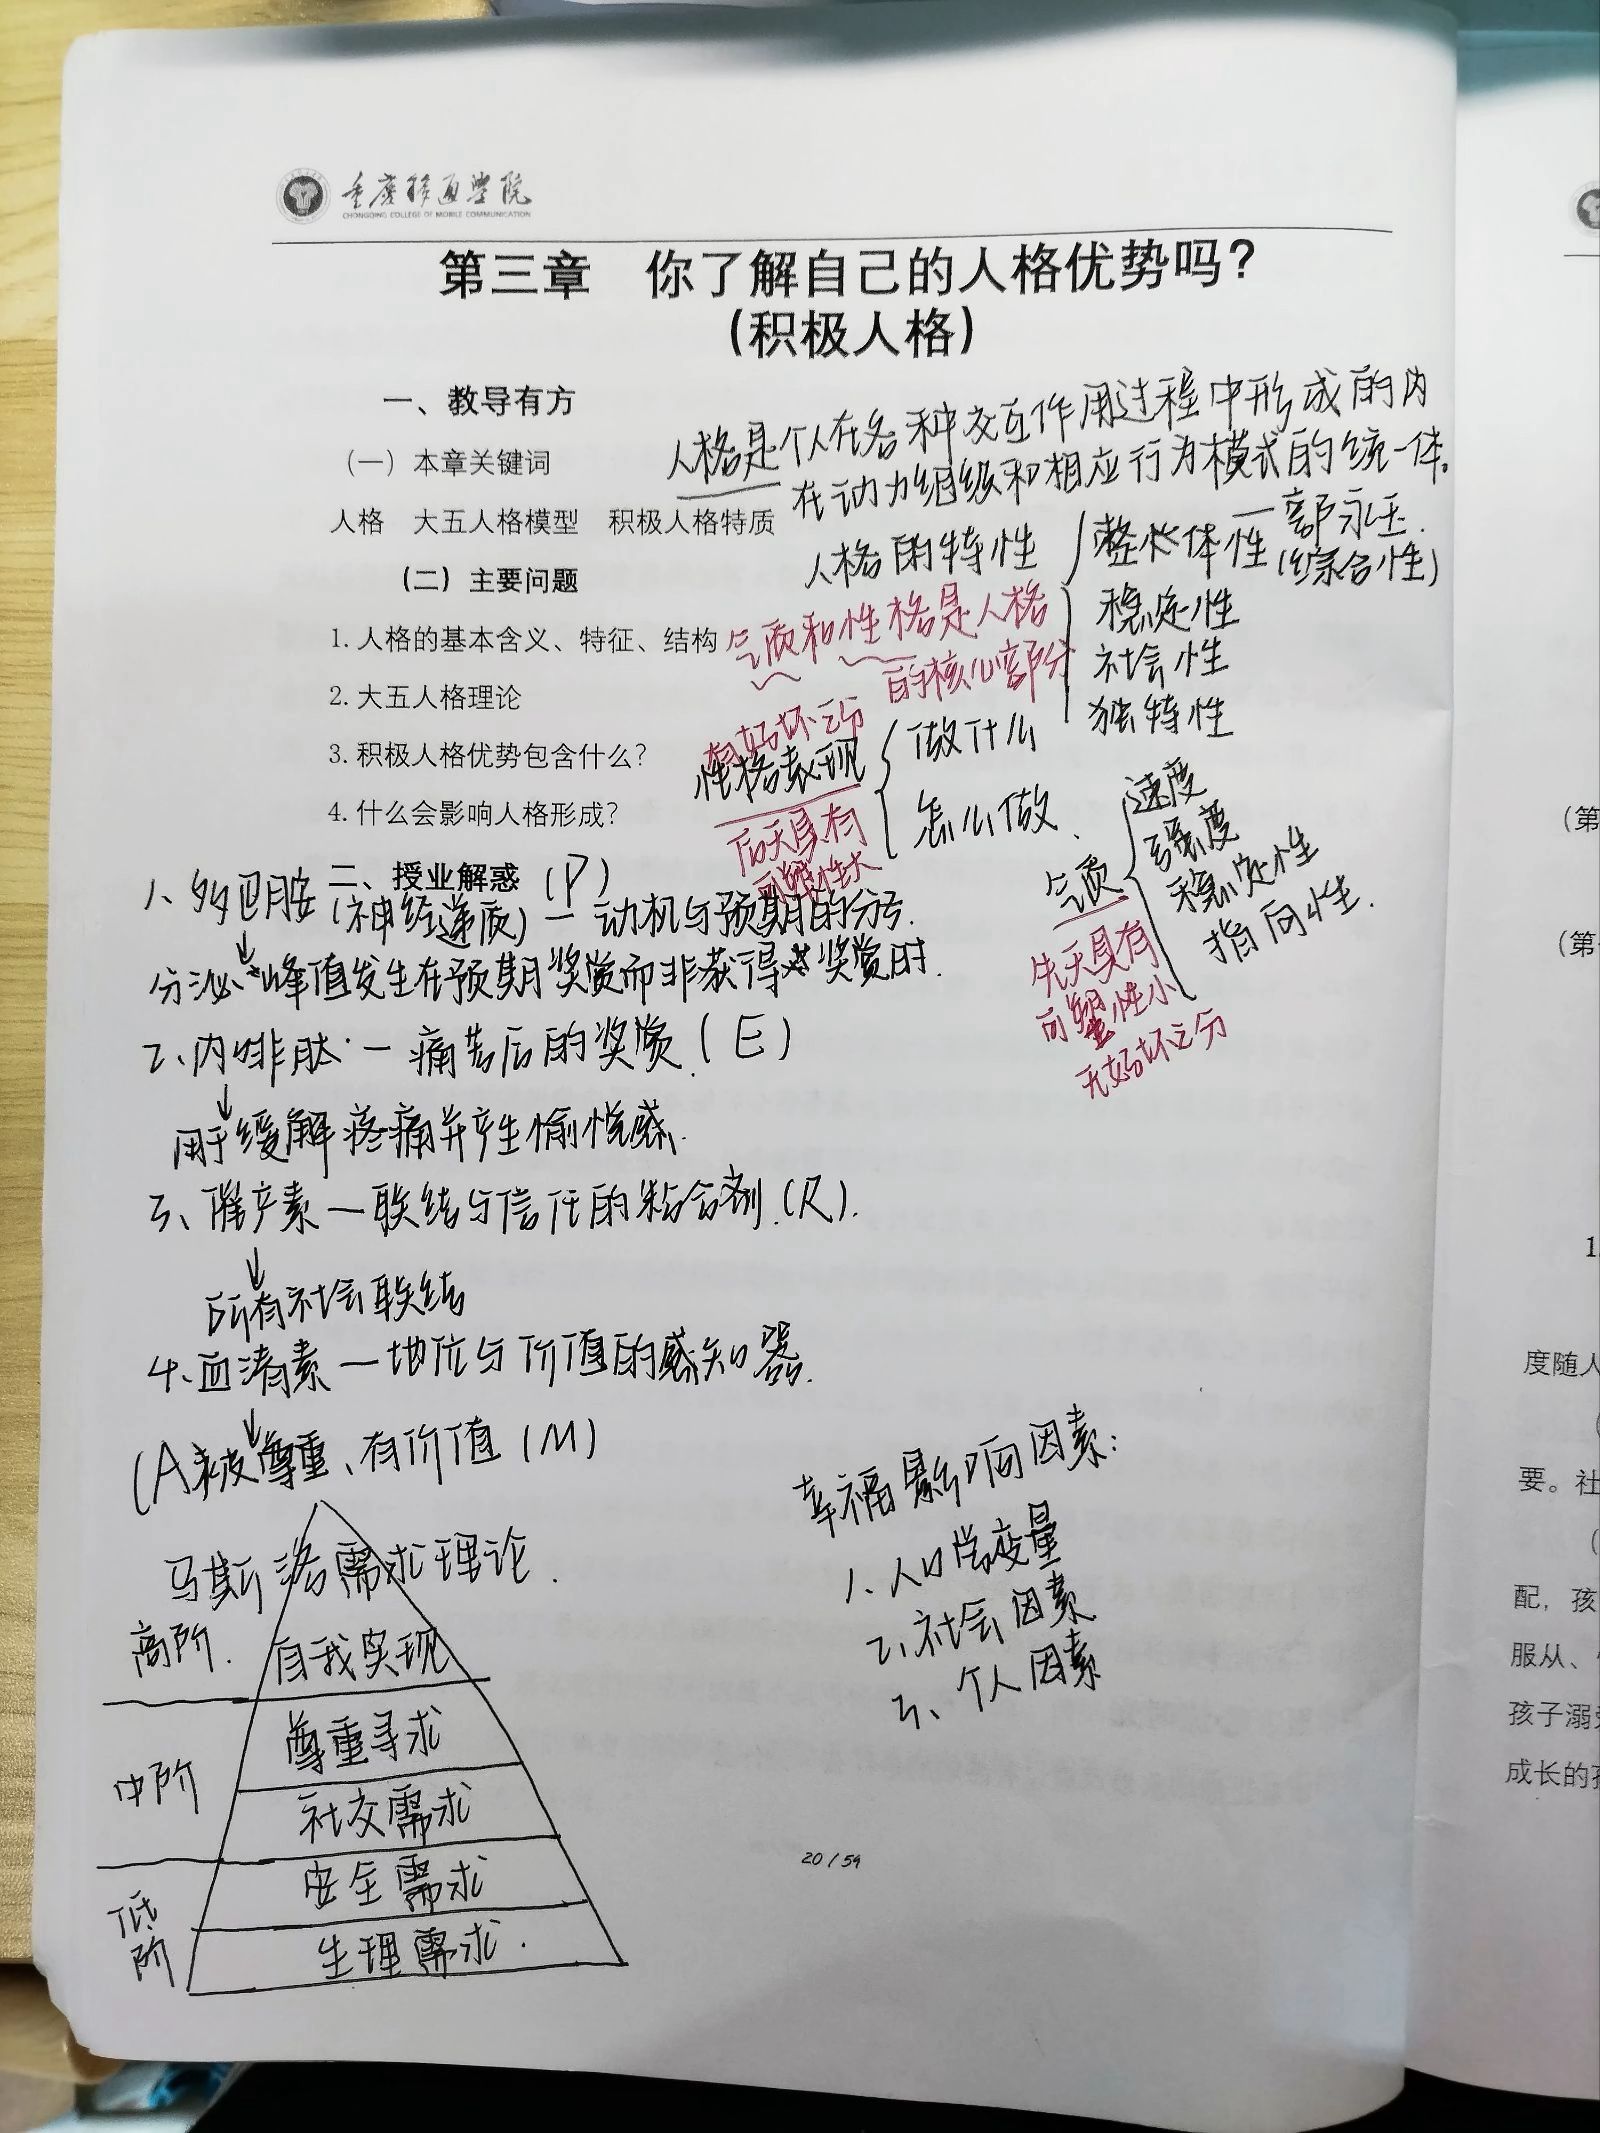 重庆移通学院
CHONGQING COLLEGE OF MOBILE COMMUNICATION
第三章 你了解自己的人格优势吗?
(积极人格)
一、教导有方
(一)本章关键词
人格 大五人格模型 积极人格特质
(二)主要问题
1.人格的基本含义、特征、结构
2.大五人格理论
3.积极人格优势包含什么?
4.什么会影响人格形成?
二、授业解惑
人格是个人在各种交互作用过程中形成的内
在动力组织和相应行为模式的统一体。
人格的特性
整体性
(综合性)
稳定性
社会性
独特性
气质和性格是人格
的核心部分
有好坏之分
性格表现
做什么
怎么做
后天具有
可塑性大
气质
速度
强度
稳定性
指向性.
先天具有
可塑性小
无好坏之分
1、多巴胺 (P)
(神经递质)—动机与预期的分子.
分泌峰值发生在预期奖赏而非获得奖赏时.
2、内啡肽—痛苦后的奖赏(E)
用于缓解疼痛并产生愉悦感.
3、催产素—联结与信任的粘合剂.(R).
所有社会联结
4、血清素—地位与价值的感知器.
(A被尊重、有价值(M)
马斯洛需求理论.
高阶.
自我实现
中阶
尊重寻求
社交需求
低阶
安全需求
生理需求.
幸福影响因素:
1、人口学变量
2、社会因素
3、个人因素
20/59
(第
(第
1.
度随人
(
要。社
(
配,孩
服从、
孩子溺
成长的孩